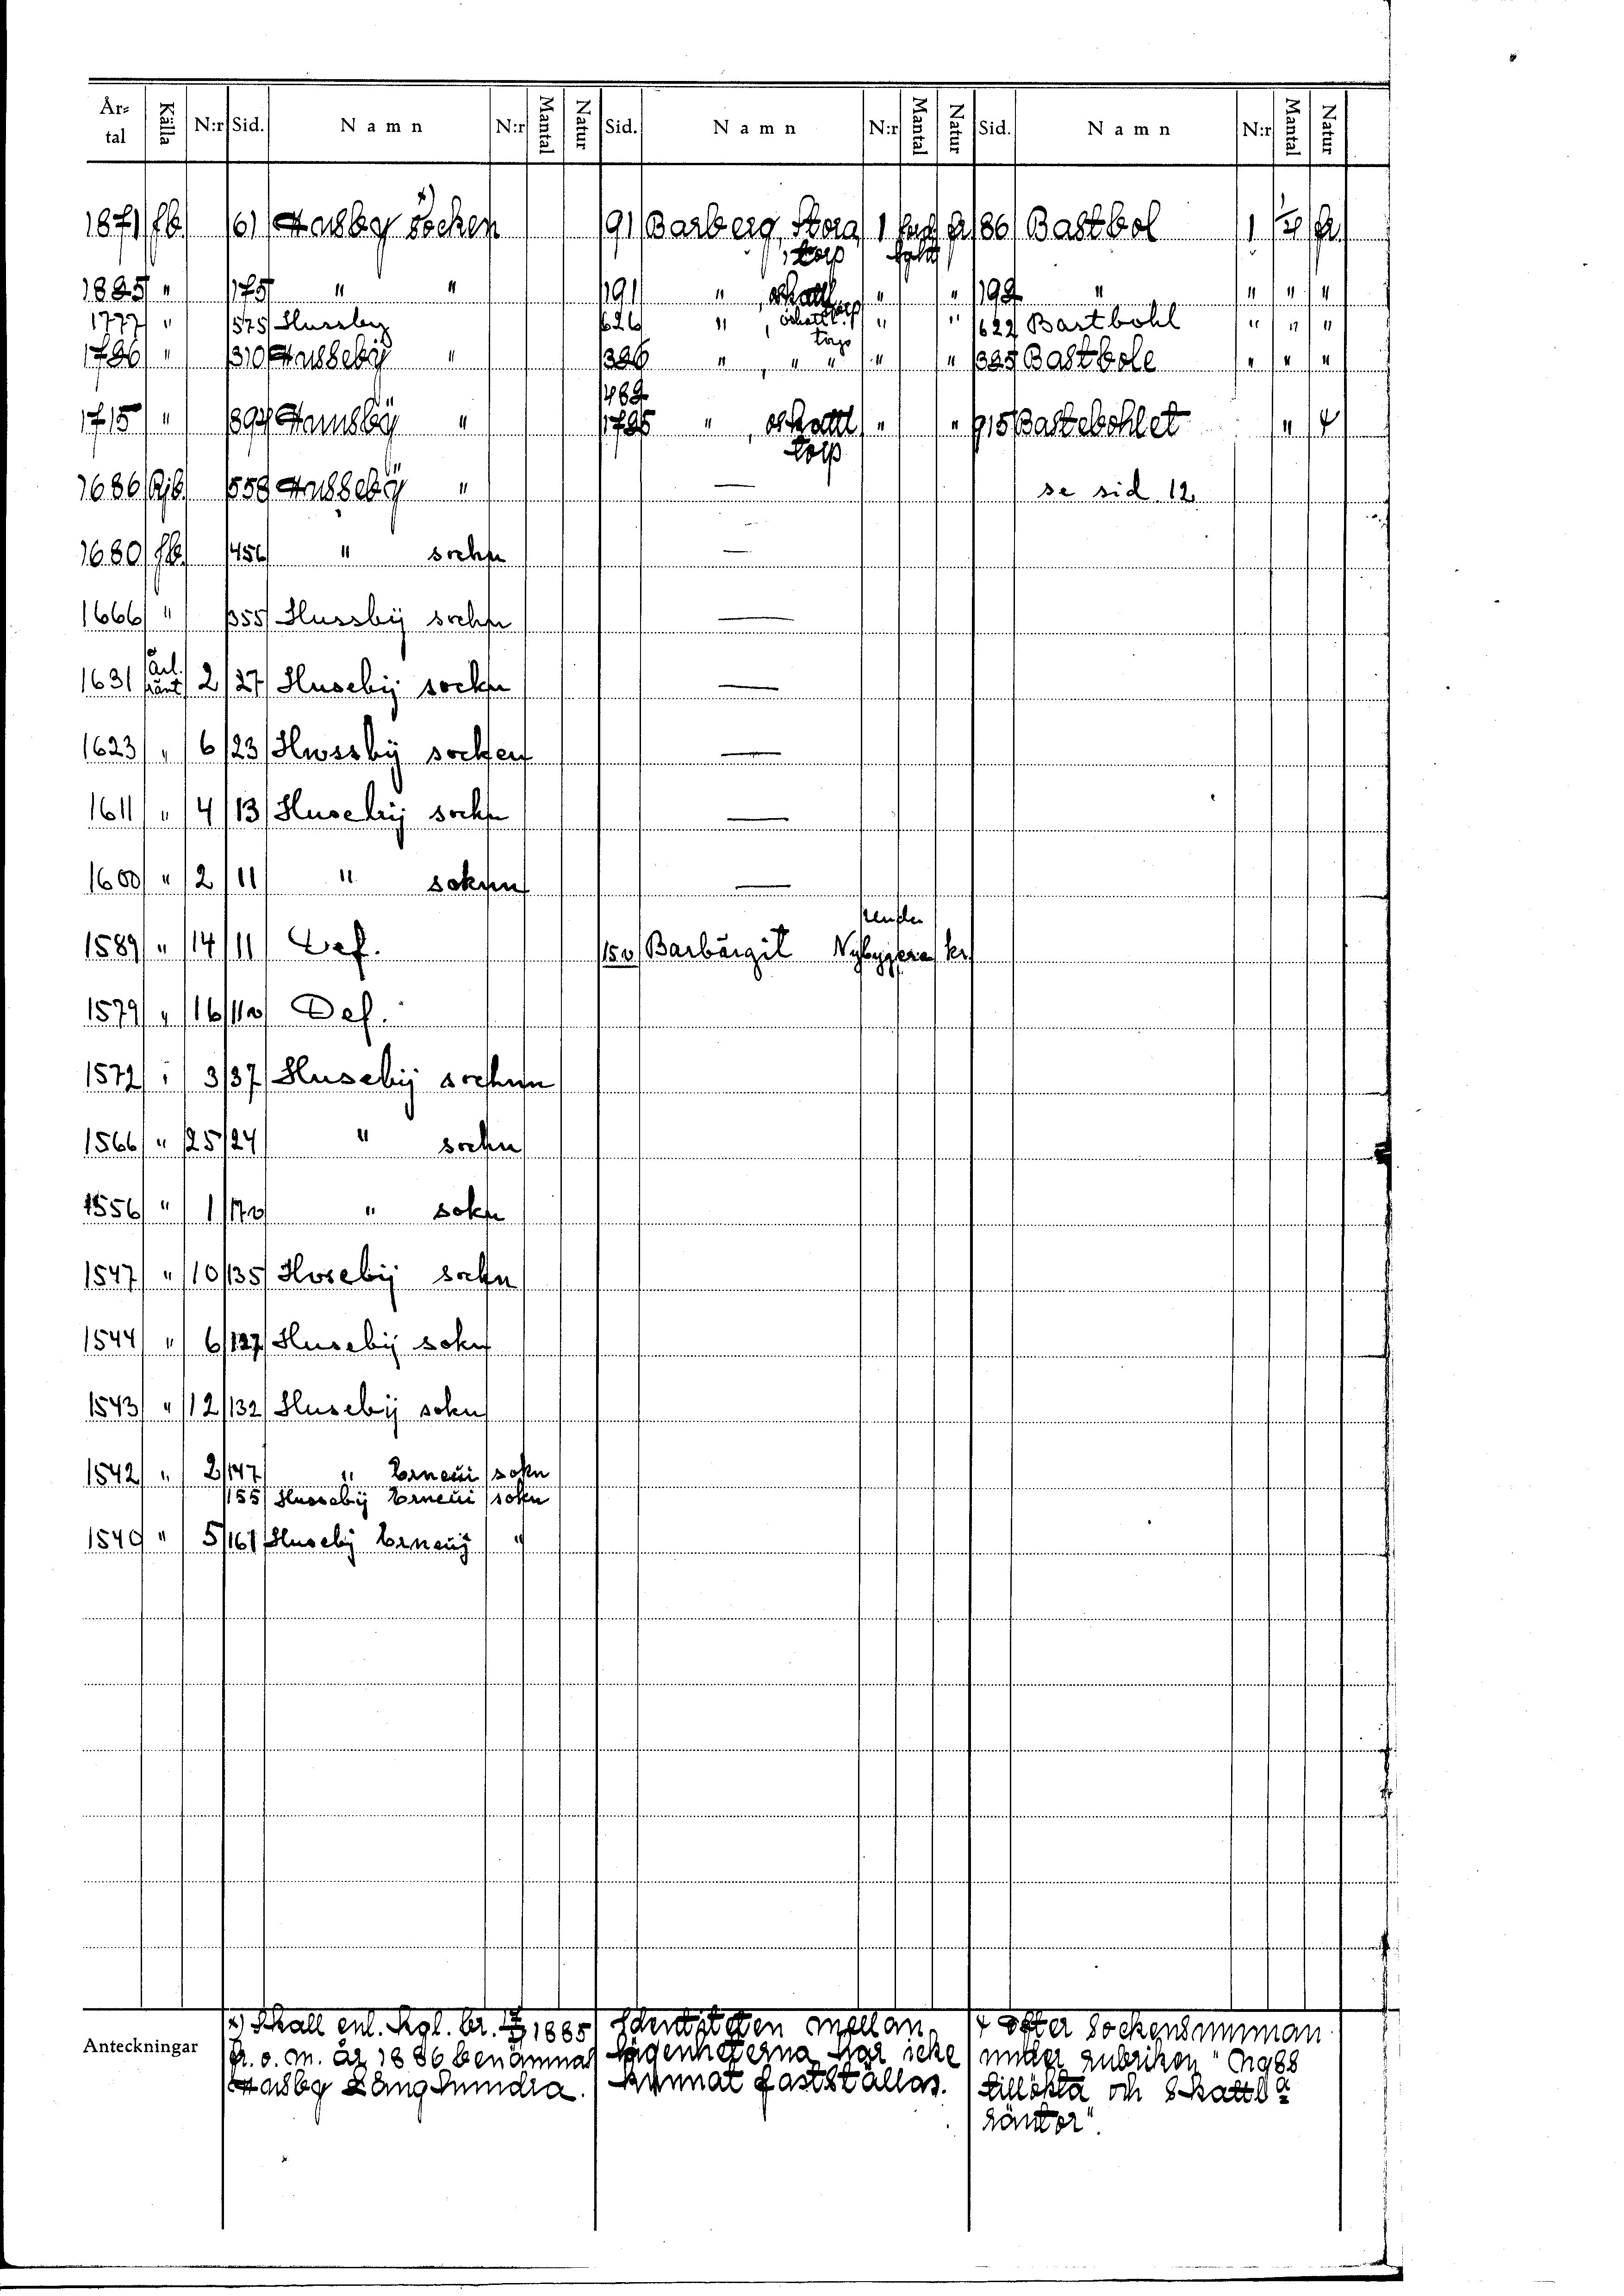 År-tal Källa N:r Sid. Namn N:r Mantal Natur Sid. Namn N:r Mantal Natur Sid. Namn N:r Mantal Natur
1871 Jb. 61 Husby socken x) 91 Barberg, Stora, torp 1 86 Bastbol 1 1/4 fr.
1825 " 175 " " 191 " , oskattl. torp " " 192 " " " "
1777 " 575 Hussby 626 " , oskattl. torp " " 622 Bastbohl " " "
1726 " 310 Husseby " 326 " , " " " " 325 Bastbole " " "
1715 " 894 Huusbÿ " 489 1725 " , oskattl torp " " 915 Bastebohlet " +
1686 Rjb. 558 Hussebÿ " — se sid. 12.
1680 Jb. 456 " sochn —
1666 " 355 Hussbÿ sochn —
1631 Årl. ränt 2 27 Husebij sockn —
1623 " 6 23 Hwssbÿ socken —
1611 " 4 13 Husebij sochn —
1600 " 2 11 " soknn —
1589 " 14 11 Def. 15v Barbärgit Under Nybyggera kr.
1579 " 16 11v Def.
1572 " 3 37 Husebij sochnn
1566 " 25 24 " sochn
1556 " 1 17v " sokn
1547 " 10 135 Hvsebij sochn
1544 " 6 127 Husebij sokn
1543 " 12 132 Husebij sokn
1542 " 2 147 " Erneüi sokn
155 Hussebij Erneüi sokn
1540 " 5 161 Husebij Erneüj "
Anteckningar
x) Skall enl. Kgl. br. 1885
fr. o. m. år 1886 benämnas
Husby Långhundra.
Identiteten mellan
lägenheterna har icke
kunnat fastställas.
+ Efter sockensumman
under rubriken "Nyss
tillökta och skattla
räntor".